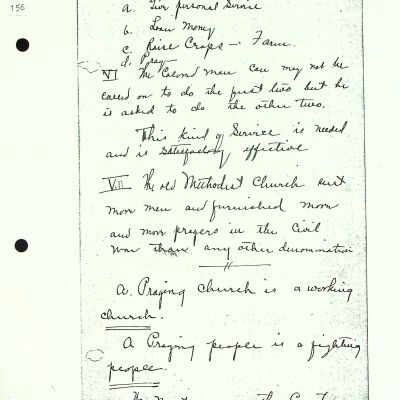 156
a. Give personal Service
b. Loan Money
c. Raise Crops – Farm.
d. Pray
VI The Colored man can may not be
called on to do the first two but he
is asked to do the other two.
This kind of Service is needed
and is satisfactory effective
VII The old Methodist Church sent
more men and furnished more
and more prayers in the Civil
War than any other denomination
A Praying church is a working
church.
A Praying people is a fighting
people.
The